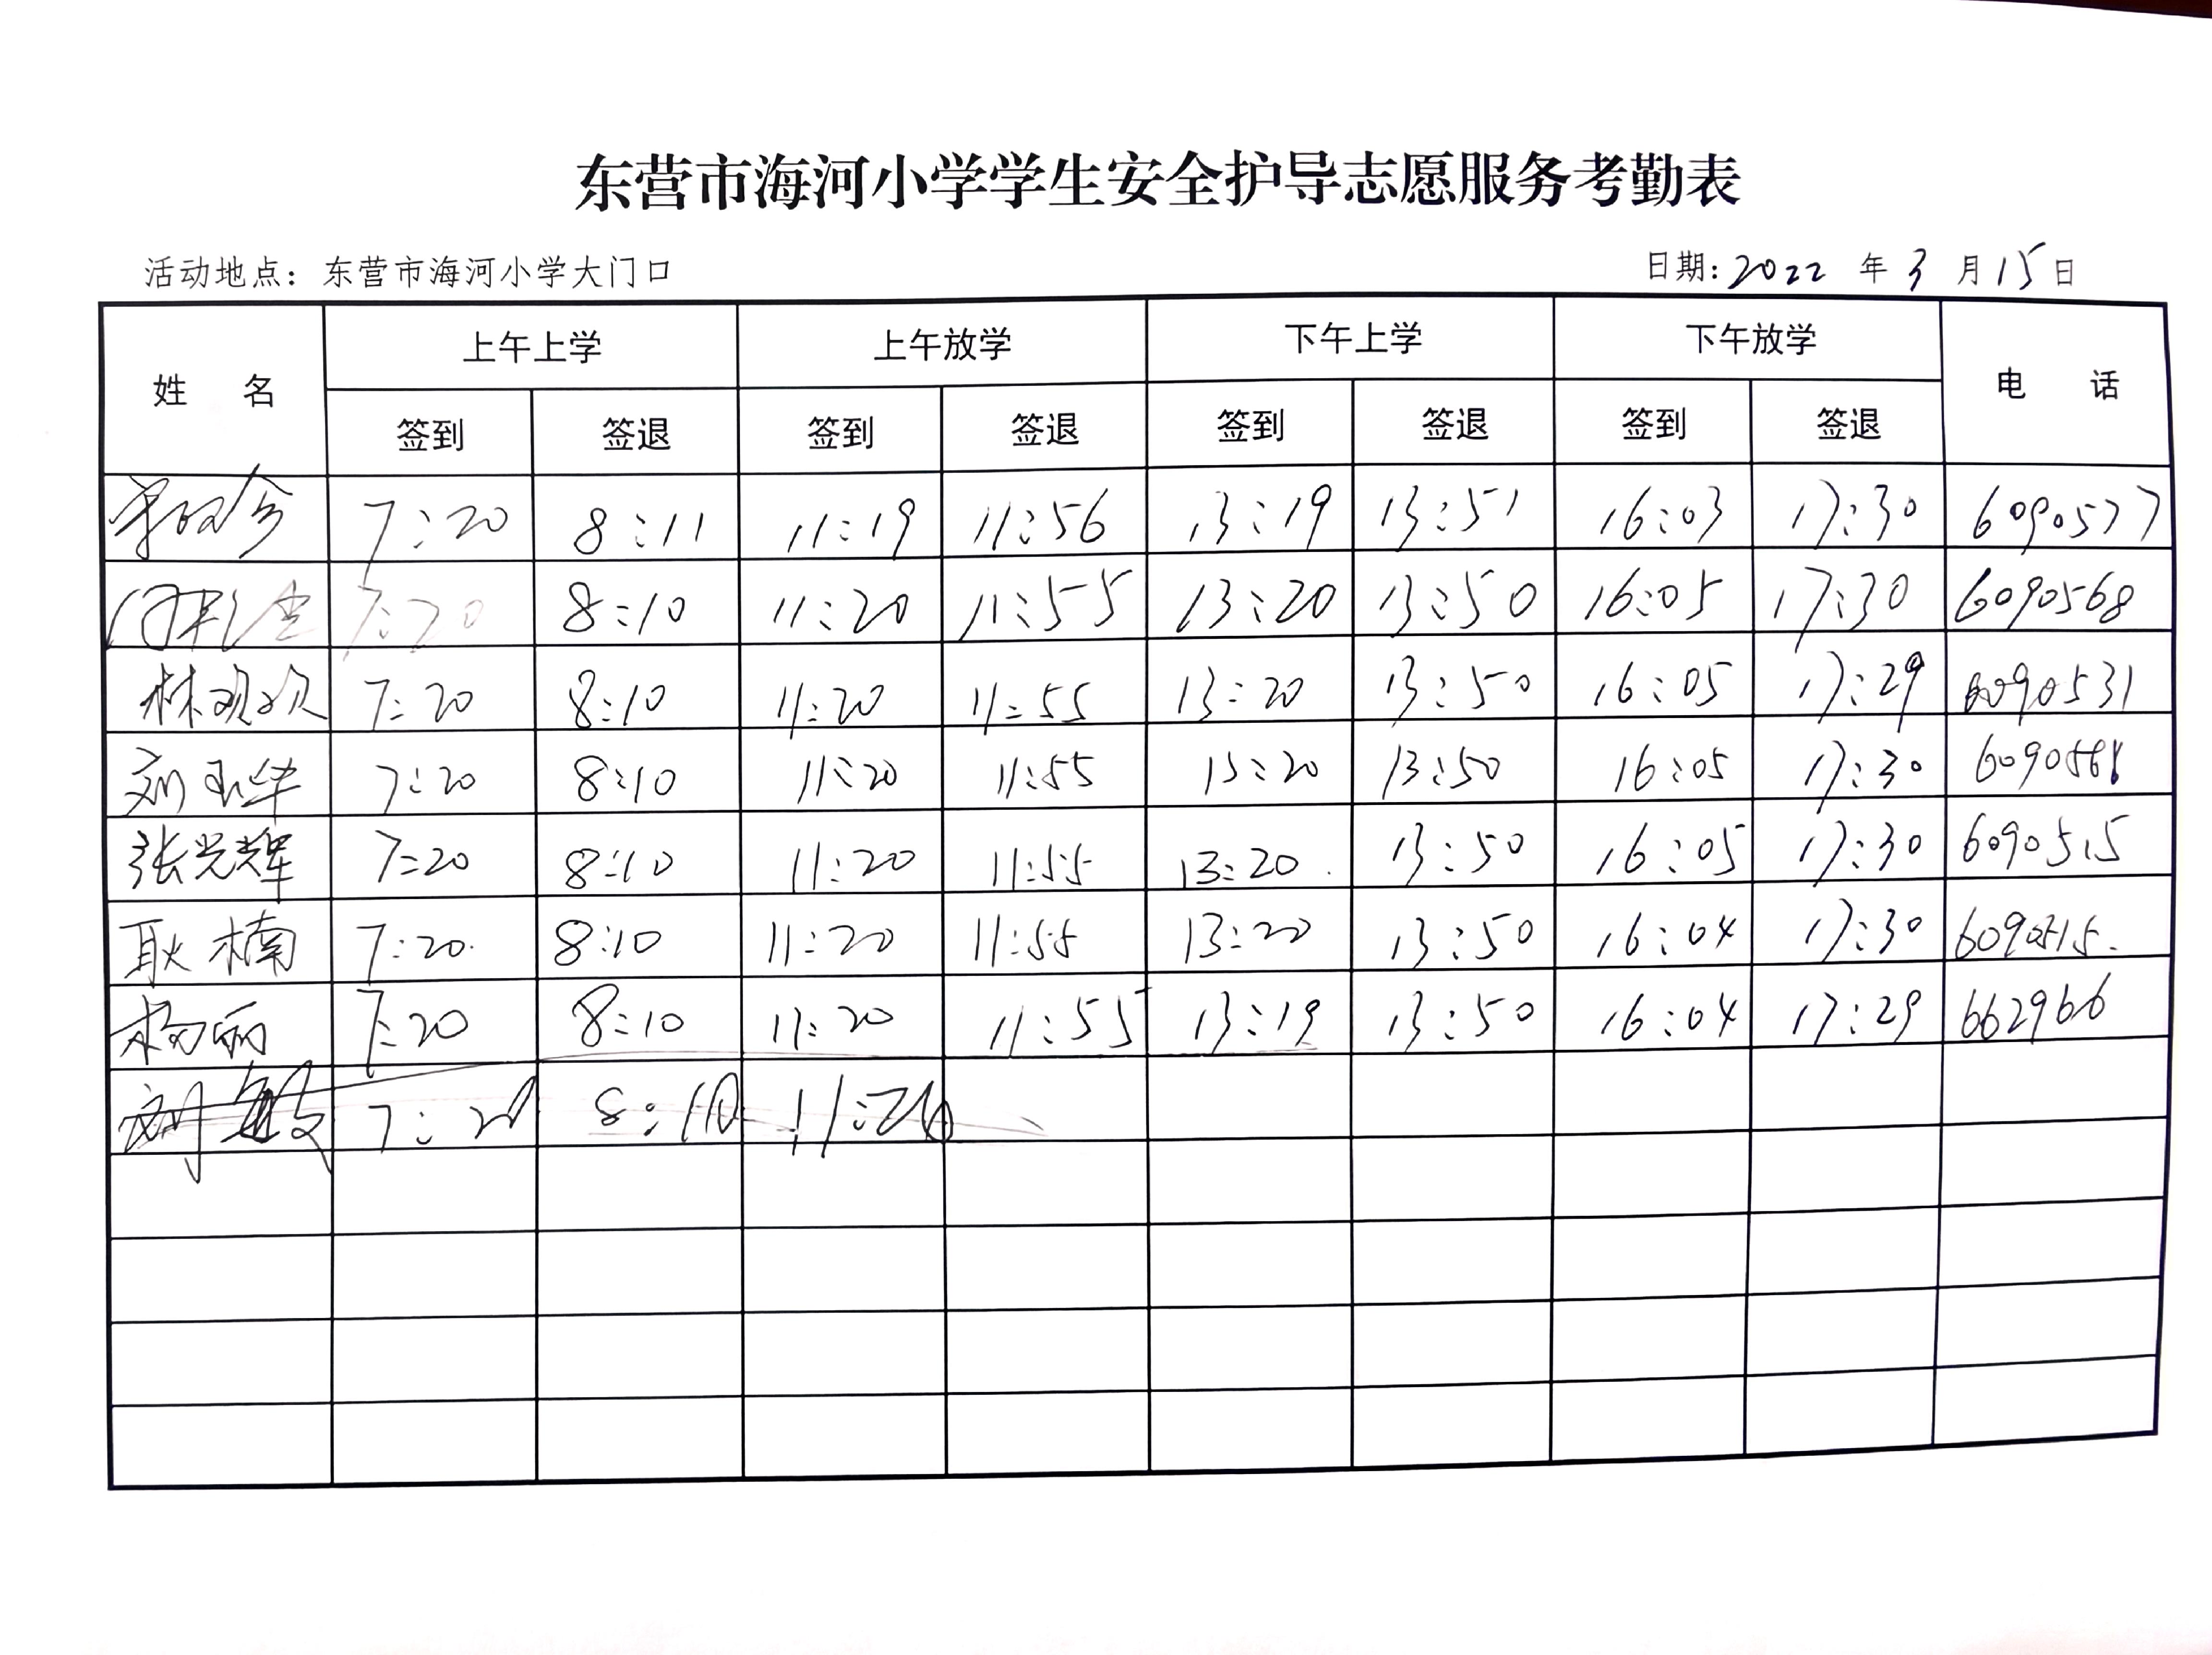 东营市海河小学学生安全护导志愿服务考勤表
活动地点：东营市海河小学大门口 日期：2022 年 3 月 15 日
姓 名 上午上学 上午放学 下午上学 下午放学 电 话
签到 签退 签到 签退 签到 签退 签到 签退
7:20 8:11 11:19 11:56 13:19 13:51 16:03 17:30 6090577
7:20 8:10 11:20 11:55 13:20 13:50 16:05 17:30 6090568
7:20 8:10 11:20 11:55 13:20 13:50 16:05 17:29 6090531
刘玉华 7:20 8:10 11:20 11:55 13:20 13:50 16:05 17:30
张光辉 7:20 8:10 11:20 11:55 13:20 13:50 16:05 17:30 6090515
耿楠 7:20 8:10 11:20 11:55 13:20 13:50 16:04 17:30 6090515
杨丽 7:20 8:10 11:20 11:55 13:19 13:50 16:04 17:29 662966
刘敏 7:20 8:10 11:20